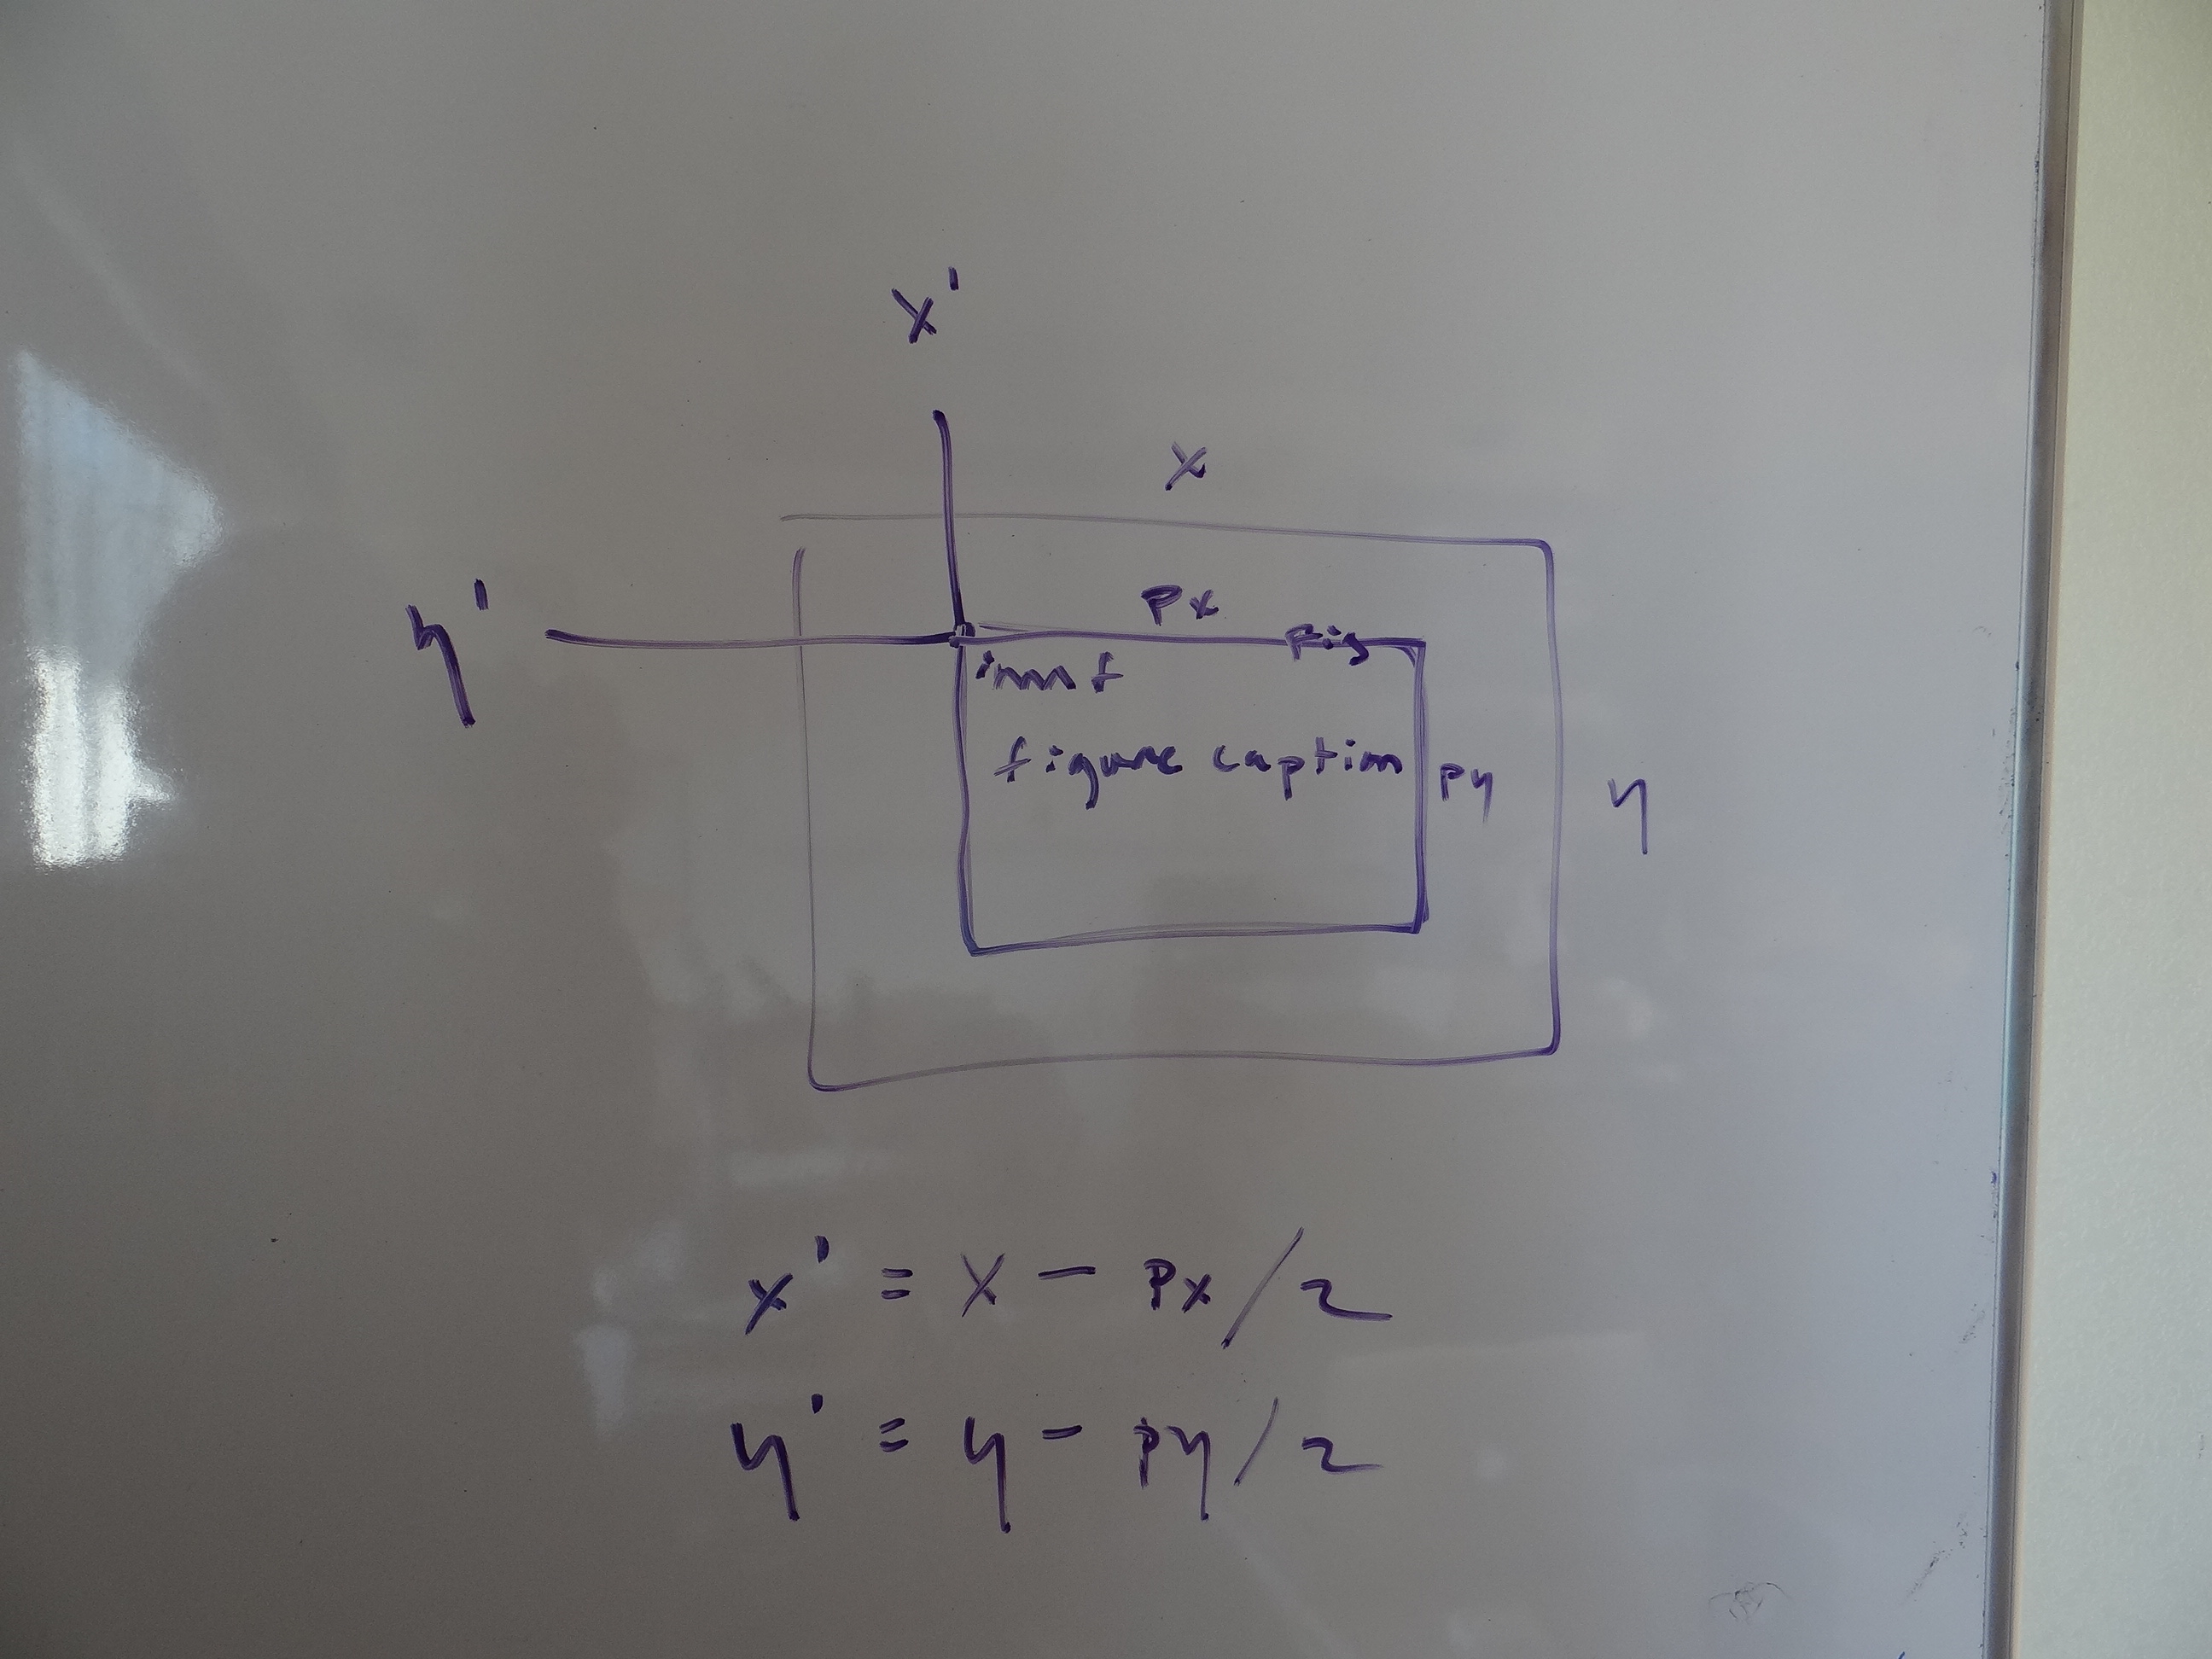 x'
x
y'
px
fig
figure caption
py
y
x' = x - px/2
y' = y - py/2